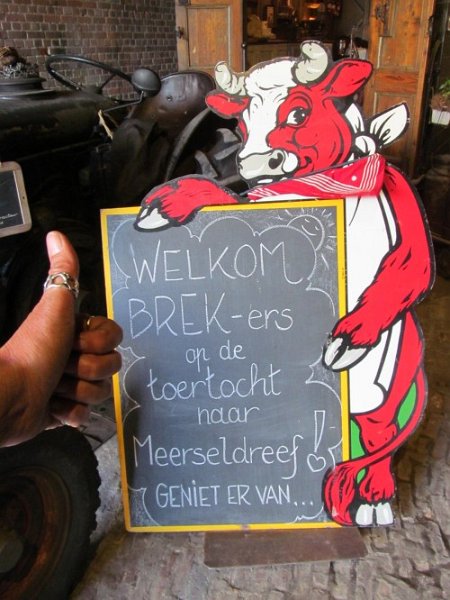 WELKOM
BREK-ers
op de
toertocht
naar
Meerseldreef!
GENIET ER VAN...